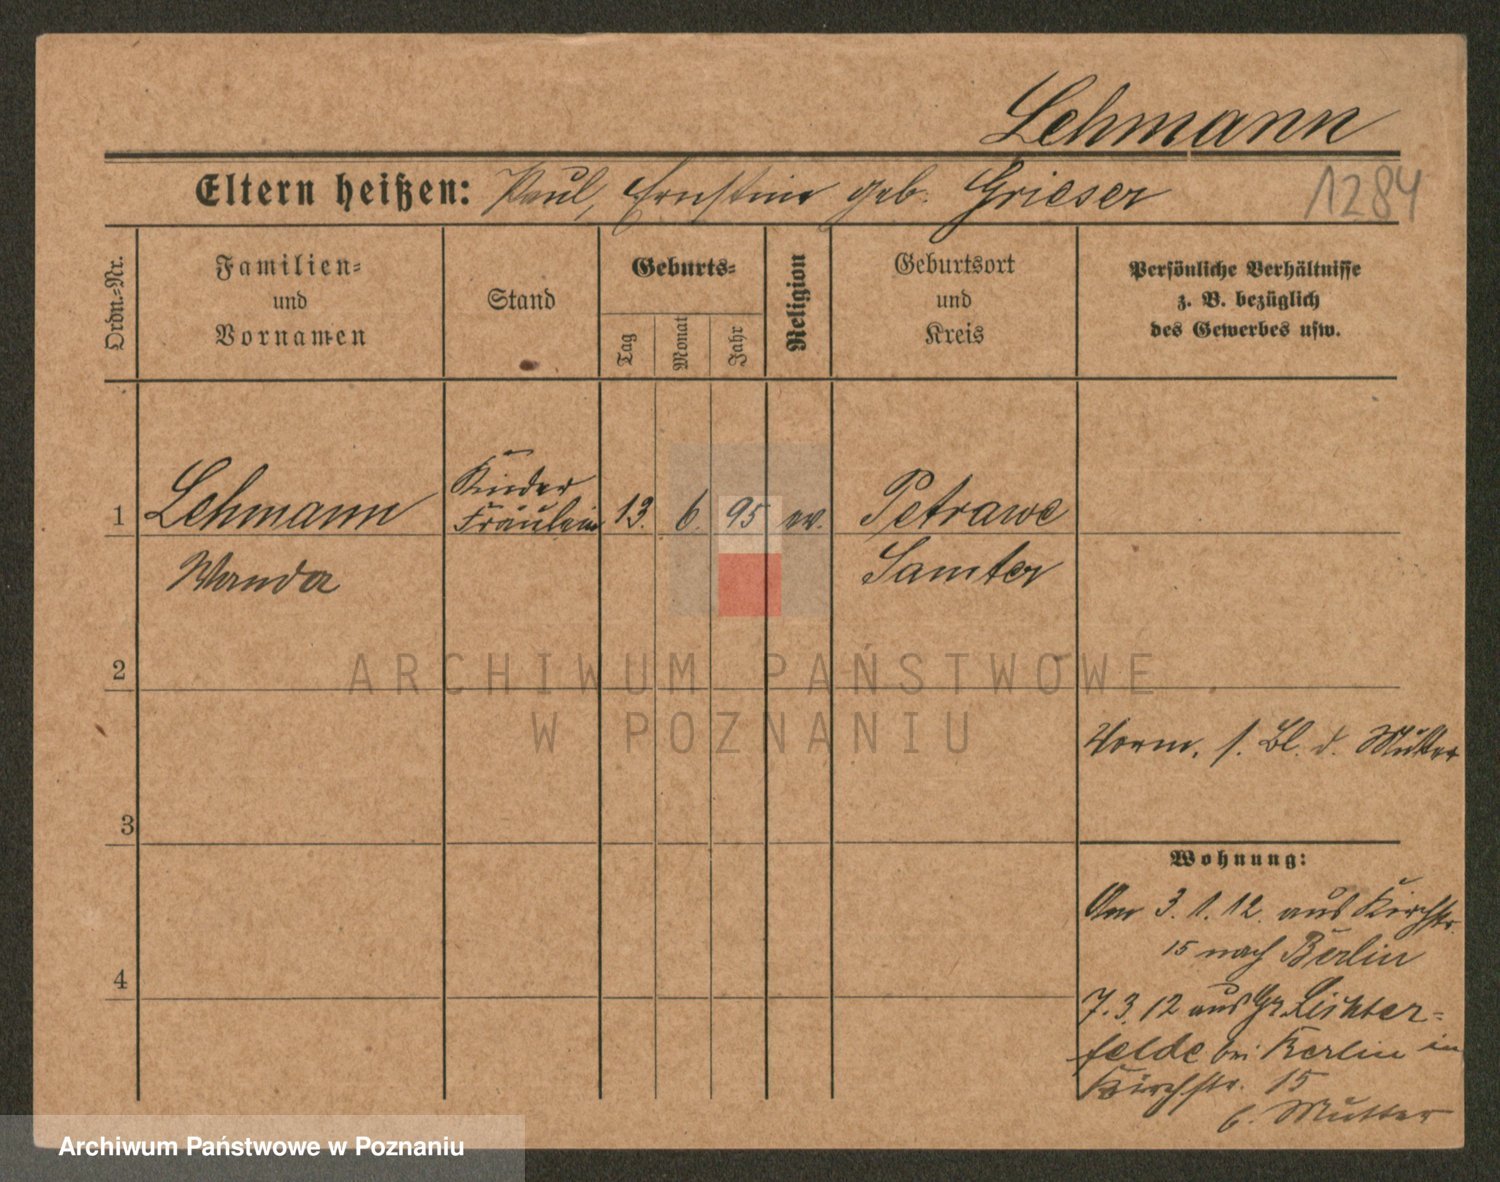 Lehmann
Eltern heißen: Paul, Ernstine geb. Grieser
1284
Ordn.-Nr.
Familien-
und
Vornamen
Stand
Geburts-
Tag
Monat
Jahr
Religion
Geburtsort
und
Kreis
Persönliche Verhältnisse
z. B. bezüglich
des Gewerbes usw.
1
Lehmann
Wanda
Kinder
Fräulein
13. 6. 95 ev.
Petrawe
Samter
2
ARCHIWUM PAŃSTWOWE
W POZNANIU
Vorm. s. Bl. d. Mutter
3
Wohnung:
Am 3. 1. 12. aus Kirchstr.
15 nach Berlin
4
7. 3. 12 aus Gr Lichter-
felde bei Berlin in
Kirchstr. 15
b. Mutter
Archiwum Państwowe w Poznaniu